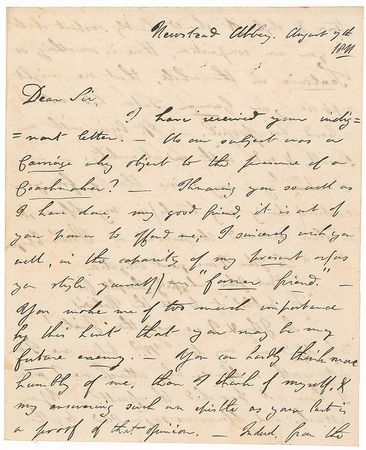 Newstead Abbey. August 9th
1811
Dear Sir
I have received your indig=
=nant letter. — As our subject was a
Carriage why object to the presence of a
Coachmaker? — Knowing you so well as
I have done, my good friend, it is out of
your power to offend me, I sincerely wish you
well, in the capacity of my present, or (as
you style yourself) my "former friend." —
You make me of too much importance
by this hint that you may be my
future enemy. — You can hardly think more
humbly of me, than I think of myself, &
my answering such an epistle as your last is
a proof of that opinion. — Indeed, from the